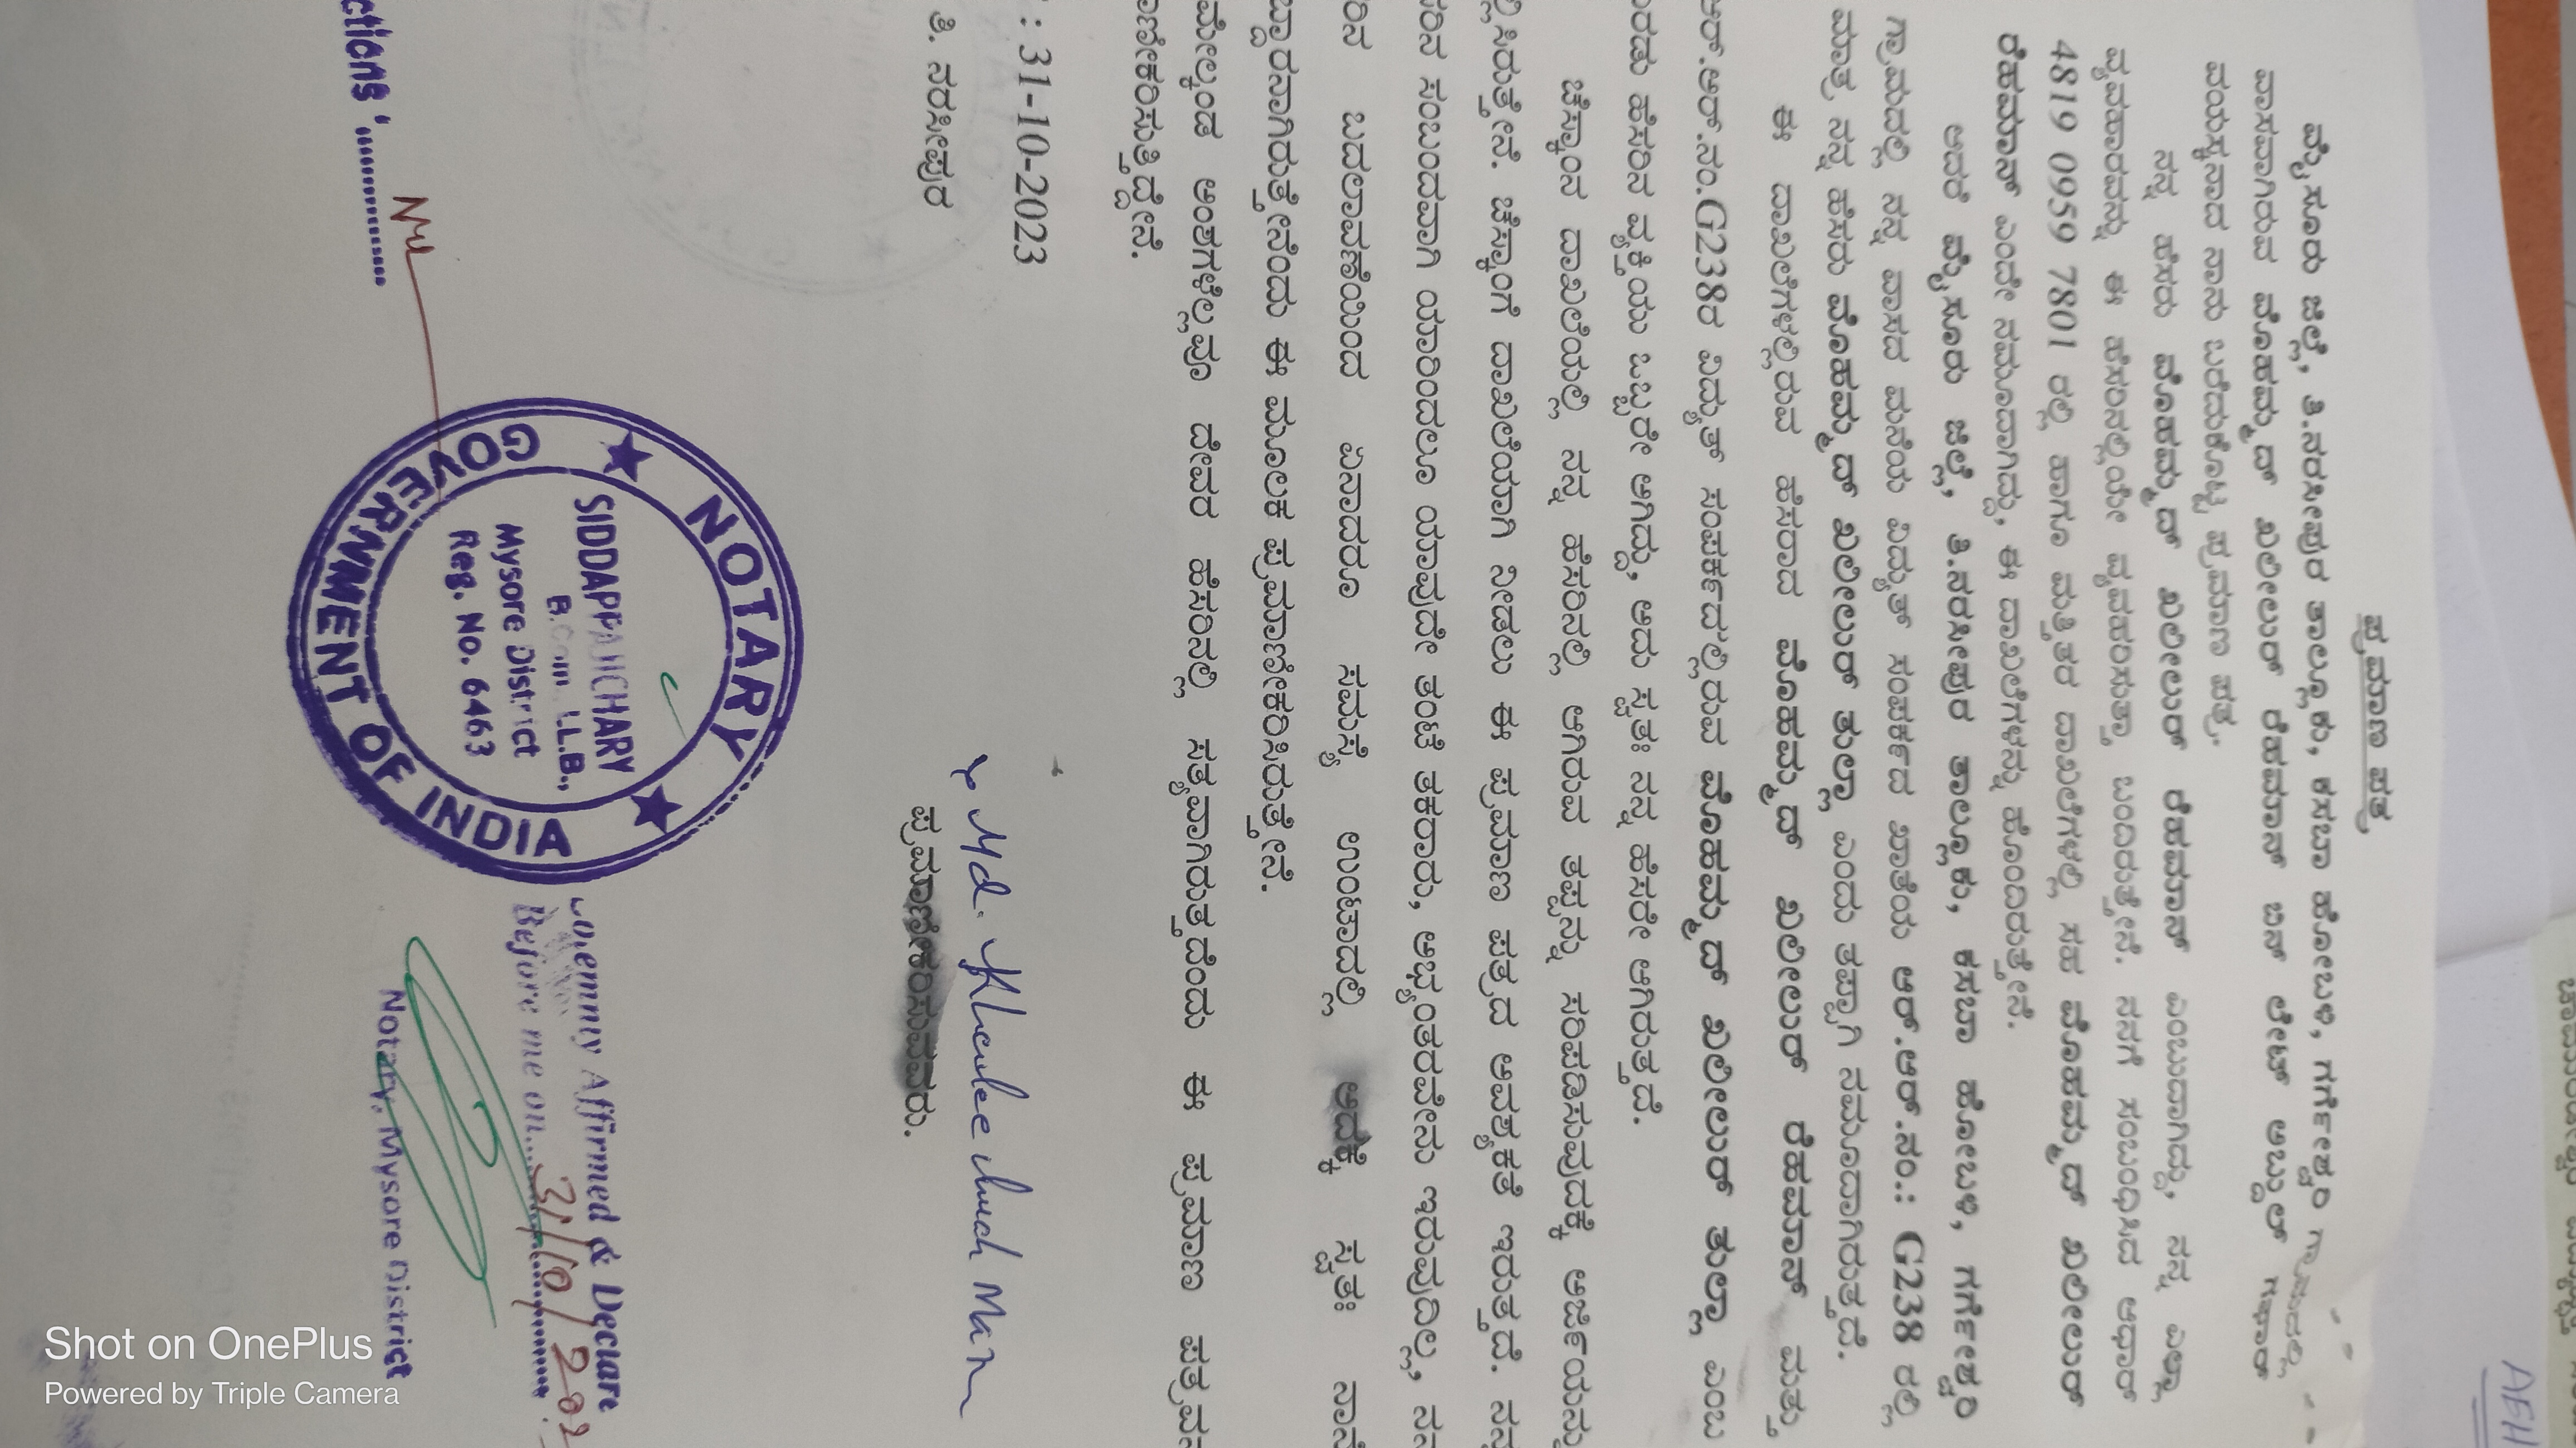 ಪ್ರಮಾಣ ಪತ್ರ
ಮೈಸೂರು ಜಿಲ್ಲೆ, ತಿ.ನರಸೀಪುರ ತಾಲ್ಲೂಕು, ಕಸಬಾ ಹೋಬಳಿ, ಗರ್ಗೇಶ್ವರಿ ಗ್ರಾಮದಲ್ಲಿ
ವಾಸವಾಗಿರುವ ಮೊಹಮ್ಮದ್ ಖಲೀಲುರ್ ರೆಹಮಾನ್ ಬಿನ್ ಲೇಟ್ ಅಬ್ದುಲ್ ಗಫಾರ್
ವಯಸ್ಕನಾದ ನಾನು ಬರೆದುಕೊಟ್ಟ ಪ್ರಮಾಣ ಪತ್ರ.
ನನ್ನ ಹೆಸರು ಮೊಹಮ್ಮದ್ ಖಲೀಲುರ್ ರೆಹಮಾನ್ ಎಂಬುದಾಗಿದ್ದು, ನನ್ನ ಎಲ್ಲಾ
ವ್ಯವಹಾರವನ್ನು ಈ ಹೆಸರಿನಲ್ಲಿಯೇ ವ್ಯವಹರಿಸುತ್ತಾ ಬಂದಿರುತ್ತೇನೆ. ನನಗೆ ಸಂಬಂಧಿಸಿದ ಆಧಾರ್
4819 0959 7801 ರಲ್ಲಿ ಹಾಗೂ ಮತ್ತಿತರ ದಾಖಲೆಗಳಲ್ಲಿ ಸಹ ಮೊಹಮ್ಮದ್ ಖಲೀಲುರ್
ರೆಹಮಾನ್ ಎಂದೇ ನಮೂದಾಗಿದ್ದು, ಈ ದಾಖಲೆಗಳನ್ನು ಹೊಂದಿರುತ್ತೇನೆ.
ಆದರೆ ಮೈಸೂರು ಜಿಲ್ಲೆ, ತಿ.ನರಸೀಪುರ ತಾಲ್ಲೂಕು, ಕಸಬಾ ಹೋಬಳಿ, ಗರ್ಗೇಶ್ವರಿ
ಗ್ರಾಮದಲ್ಲಿ ನನ್ನ ವಾಸದ ಮನೆಯ ವಿದ್ಯುತ್ ಸಂಪರ್ಕದ ಖಾತೆಯ ಆರ್.ಆರ್.ನಂ.: G238 ರಲ್ಲಿ
ಮಾತ್ರ ನನ್ನ ಹೆಸರು ಮೊಹಮ್ಮದ್ ಖಲೀಲುರ್ ತುಲ್ಲಾ ಎಂದು ತಪ್ಪಾಗಿ ನಮೂದಾಗಿರುತ್ತದೆ.
ಈ ದಾಖಲೆಗಳಲ್ಲಿರುವ ಹೆಸರಾದ ಮೊಹಮ್ಮದ್ ಖಲೀಲುರ್ ರೆಹಮಾನ್ ಮತ್ತು
ಆರ್.ಆರ್.ನಂ.G238ರ ವಿದ್ಯುತ್ ಸಂಪರ್ಕದಲ್ಲಿರುವ ಮೊಹಮ್ಮದ್ ಖಲೀಲುರ್ ತುಲ್ಲಾ ಎಂಬ
ಹೆಸರಿನ ವ್ಯಕ್ತಿಯು ಒಬ್ಬರೇ ಆಗಿದ್ದು, ಅದು ಸ್ವತಃ ನನ್ನ ಹೆಸರೇ ಆಗಿರುತ್ತದೆ.
ಚೆಸ್ಕಾಂನ ದಾಖಲೆಯಲ್ಲಿ ನನ್ನ ಹೆಸರಿನಲ್ಲಿ ಆಗಿರುವ ತಪ್ಪನ್ನು ಸರಿಪಡಿಸುವುದಕ್ಕೆ ಅರ್ಜಿಯನ್ನು
ಲ್ಲಿಸಿರುತ್ತೇನೆ. ಚೆಸ್ಕಾಂಗೆ ದಾಖಲೆಯಾಗಿ ನೀಡಲು ಈ ಪ್ರಮಾಣ ಪತ್ರದ ಅವಶ್ಯಕತೆ ಇರುತ್ತದೆ. ನನ್ನ
ಸರಿನ ಸಂಬಂದವಾಗಿ ಯಾರಿಂದಲೂ ಯಾವುದೇ ತಂಟೆ ತಕರಾರು, ಅಭ್ಯಂತರವೇನು ಇರುವುದಿಲ್ಲ, ನನ
ರಿನ ಬದಲಾವಣೆಯಿಂದ ಏನಾದರೂ ಸಮಸ್ಯೆ ಉಂಟಾದಲ್ಲಿ ಅದಕ್ಕೆ ಸ್ವತಃ ನಾನೆ
ಬ್ದಾರನಾಗಿರುತ್ತೇನೆಂದು ಈ ಮೂಲಕ ಪ್ರಮಾಣೀಕರಿಸಿರುತ್ತೇನೆ.
ಮೇಲ್ಕಂಡ ಅಂಶಗಳೆಲ್ಲವೂ ದೇವರ ಹೆಸರಿನಲ್ಲಿ ಸತ್ಯವಾಗಿರುತ್ತದೆಂದು ಈ ಪ್ರಮಾಣ ಪತ್ರವನ
ಾಣೀಕರಿಸುತ್ತಿದ್ದೇನೆ.
: 31-10-2023
ತಿ. ನರಸೀಪುರ
Md. Khaleelur Man
ಪ್ರಮಾಣೀಕರಿಸುವವರು.
Solemnly Affirmed & Declare
Before me on 31/10/202
Notary, Mysore District
NOTARY
GOVERNMENT OF INDIA
SIDDAPPAJICHARY
B.Com., L.L.B.,
Mysore District
Reg. No. 6463
ctions '............ Nil
AEH
Shot on OnePlus
Powered by Triple Camera